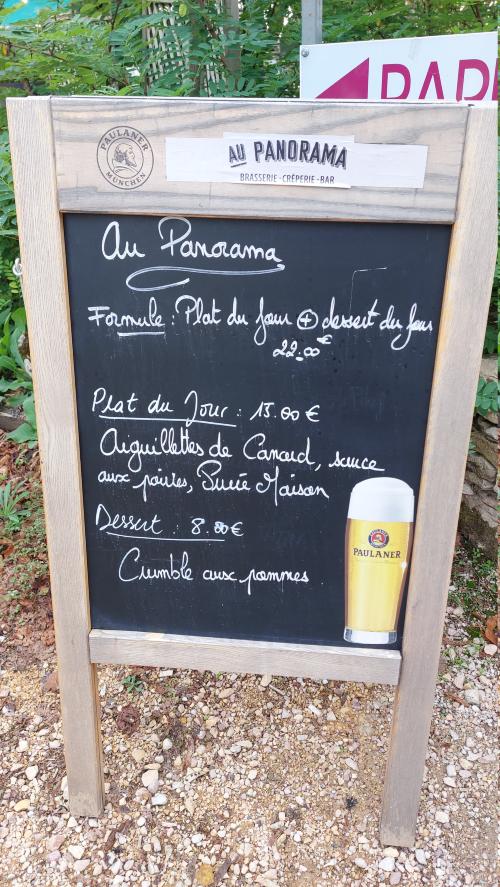 PAR
PAULANER
MÜNCHEN
AU PANORAMA
BRASSERIE - CRÊPERIE - BAR
Au Panorama
Formule : Plat du jour + dessert du jour
22.00€
Plat du Jour : 15.00 €
Aiguillettes de Canard, sauce
aux poivres, Purée Maison
Dessert : 8.00€
Crumble aux pommes
PAULANER